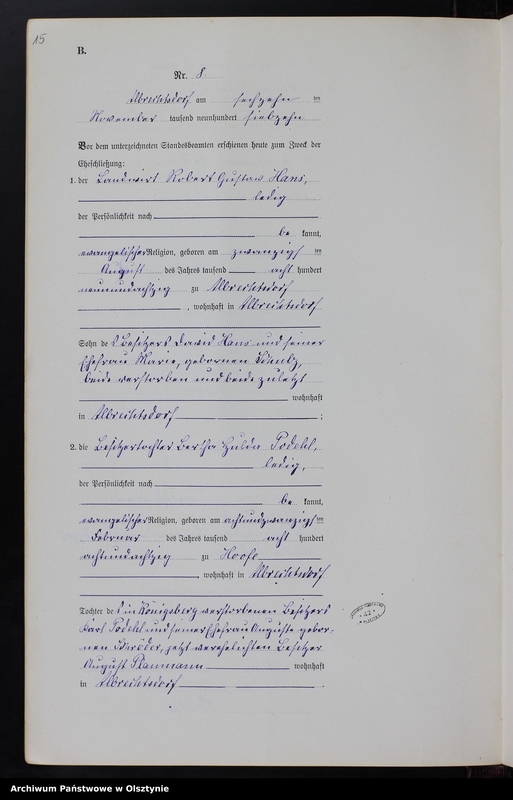 15
B.
Nr. 8
Albrechtsdorf am sechzehn ten
November tausend neunhundert siebzehn
Vor dem unterzeichneten Standesbeamten erschienen heute zum Zweck der
Eheschließung:
1. der Landwirt Robert Gustav Hans,
ledig
der Persönlichkeit nach
be kannt,
evangelischer Religion, geboren am zwanzigs ten
August des Jahres tausend acht hundert
neunundachtzig zu Albrechtsdorf
, wohnhaft in Albrechtsdorf
Sohn des Besitzers David Hans und seiner
Ehefrau Marie, gebornen
beide verstorben und beide zuletzt
wohnhaft
in Albrechtsdorf ;
2. die Besitzertochter Bertha Hulda Podehl,
ledig,
der Persönlichkeit nach
be kannt,
evangelischer Religion, geboren am achtundzwanzigs ten
Februar des Jahres tausend acht hundert
achtundachtzig zu Hoofe
, wohnhaft in Albrechtsdorf
Tochter des in Königsberg verstorbenen Besitzers
Karl Podehl und seiner Ehefrau Auguste gebor-
nen Schröder, jetzt verehelichten Besitzer
August Plaumann wohnhaft
in Albrechtsdorf .
Archiwum Państwowe w Olsztynie